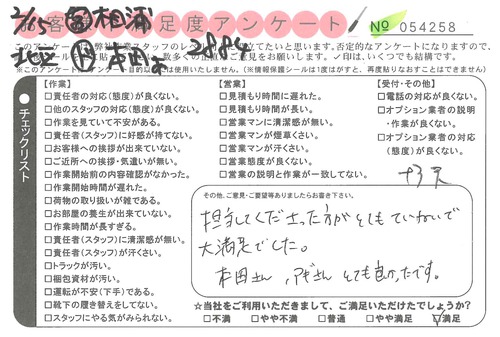 2/15 相浦
お客様満足度アンケート
№ 054258
北区 本田 2884
このアンケートは弊社
※このアンケートは目的以外では使用いたしません。(※情報保護シールは1度がはすと、再度貼りなおすことはできません)
チェックリスト
【作業】
□責任者の対応(態度)が良くない。
□他のスタッフの対応(態度)が良くない。
□作業を見ていて不安がある。
□責任者(スタッフ)に好感が持てない。
□お客様への挨拶が出来ていない。
□ご近所への挨拶・気遣いが無い。
□作業開始前の内容確認がなかった。
□作業開始時間が遅れた。
□荷物の取り扱いが雑である。
□お部屋の養生が出来ていない。
□作業時間が長すぎる。
□責任者(スタッフ)に清潔感が無い。
□責任者(スタッフ)が汗くさい。
□トラックが汚い。
□梱包資材が汚い。
□運転が不安(下手)である。
□靴下の履き替えをしてない。
□スタッフにやる気がみられない。
【営業】
□見積もり時間に遅れた。
□見積もり時間が長い。
□営業マンに清潔感が無い。
□営業マンが煙草くさい。
□営業マンが汗くさい。
□営業態度が良くない。
□営業の説明と作業が一致してない。
【受付・その他】
□電話の対応が良くない。
□オプション業者の説明
・作業が良くない。
□オプション業者の対応
(態度)が良くない。
その他、ご意見・ご要望等ありましたらお書き下さい。
担当してくださった方がとてもていねいで
大満足でした。
本田さん、アギさんとても良かったです。
☆当社をご利用いただきまして、ご満足いただけたでしょうか?
□不満 □やや不満 □普通 □やや満足 ☑満足